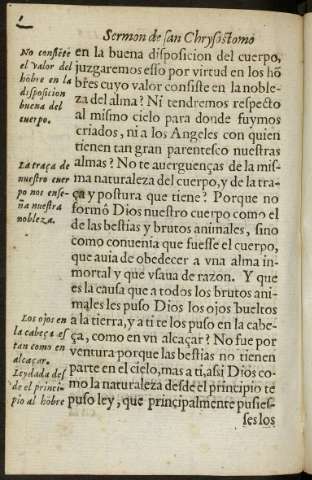 Sermon de san Chrysostomo
en la buena disposicion del cuerpo,
juzgaremos esso por virtud en los hō
bres cuyo valor consiste en la noble-
za del alma? Ni tendremos respecto
al mismo cielo para donde fuymos
criados, ni a los Angeles con quien
tienen tan gran parentesco nuestras
almas? No te auerguenças de la mis-
ma naturaleza del cuerpo, y de la tra-
ça y postura que tiene? Porque no
formó Dios nuestro cuerpo como el
de las bestias y brutos animales, sino
como conuenia que fuesse el cuerpo,
que auia de obedecer a vna alma in-
mortal y que vsaua de razon. Y que
es la causa que a todos los brutos ani-
males les puso Dios los ojos bueltos
a la tierra, y a ti te los puso en la cabe-
ça, como en vn alcaçar? No fue por
ventura porque las bestias no tienen
parte en el cielo, mas a ti, assi Dios co-
mo la naturaleza desde el principio te
puso ley, que principalmente pusies-
ses los
No consiste
el valor del
hōbre en la
disposicion
buena del
cuerpo.
La traça de
nuestro cuer
po nos ense-
ña nuestra
nobleza.
Los ojos en
la cabeça es
tan como en
alcaçar.
Ley dada des
de el princi-
pio al hōbre